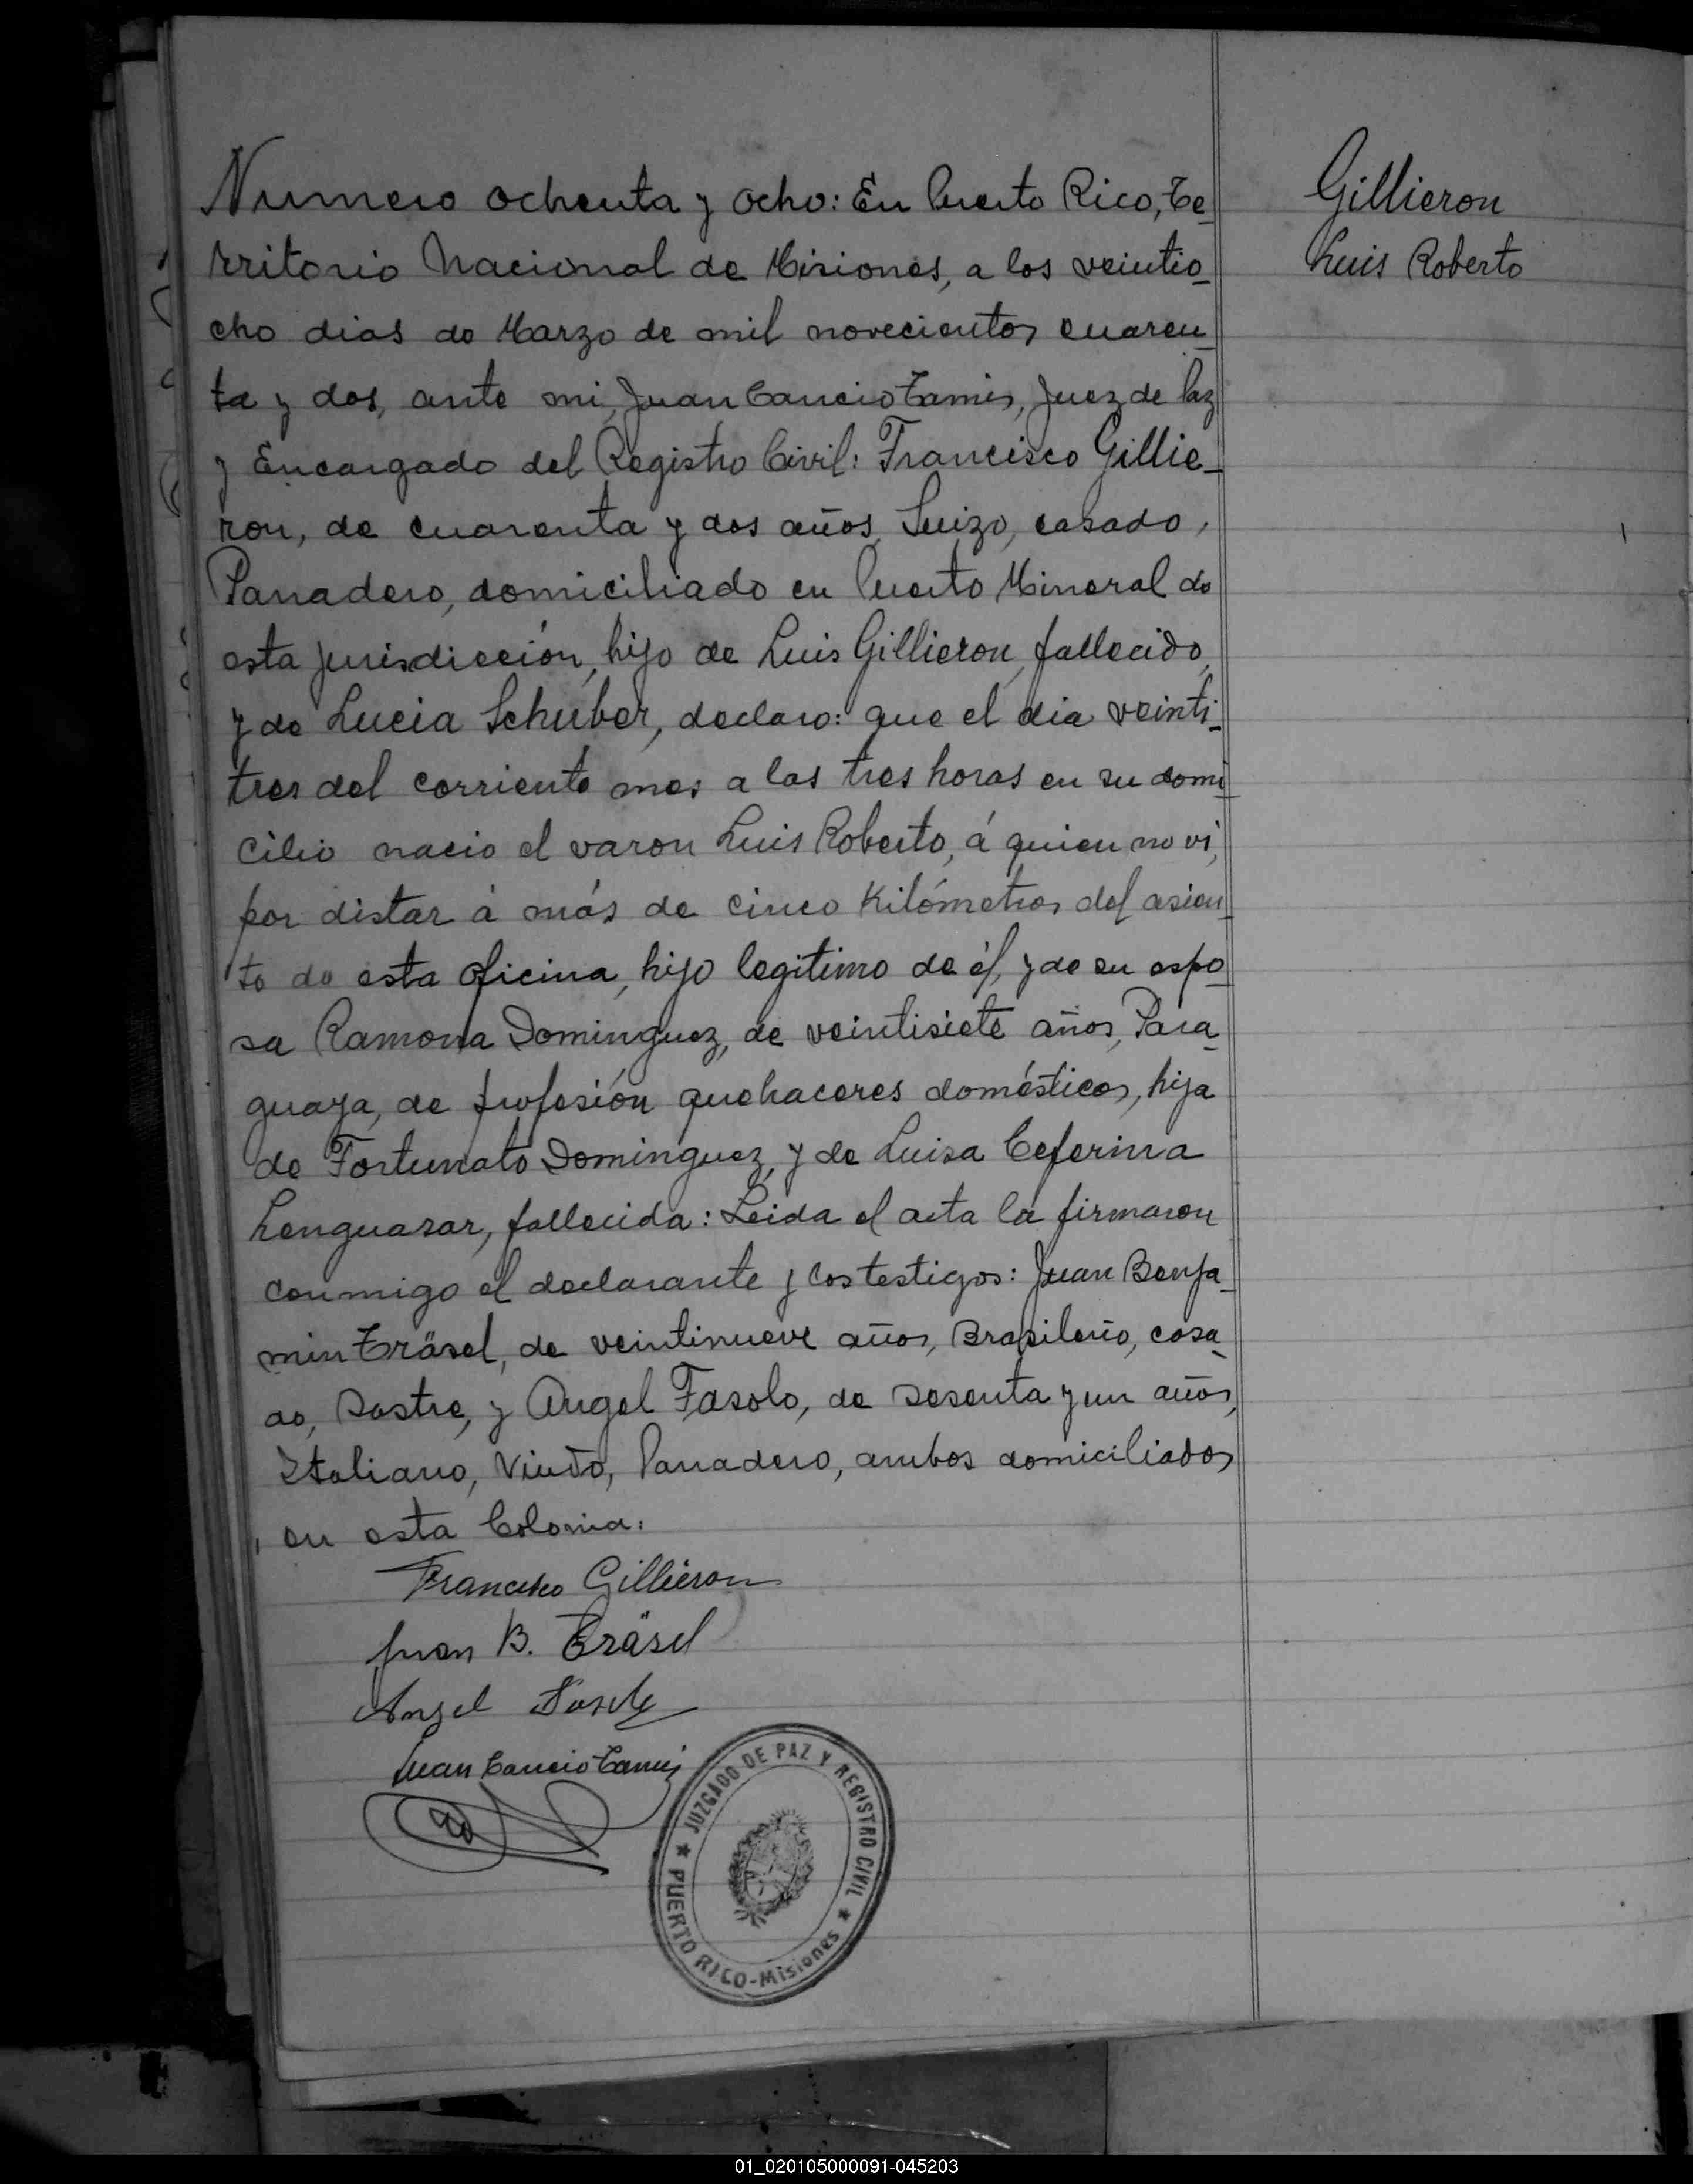 Numero ochenta y ocho: En Puerto Rico, Te_
rritorio Nacional de Misiones, a los veintio_
cho dias de Marzo de mil novecientos cuaren_
ta y dos, ante mi, Juan Cancio Tamis, Juez de Paz
y Encargado del Registro Civil: Francisco Gillie_
ron, de cuarenta y dos años, Suizo, casado,
Panadero, domiciliado en Puerto Mineral de
esta jurisdicción, hijo de Luis Gillieron, fallecido,
y de Lucia Schuber, declaro: que el dia veinti_
tres del corriente mes a las tres horas en su domi_
cilio nacio el varon Luis Roberto, á quien no vi,
por distar á más de cinco Kilómetros del asien_
to de esta oficina, hijo legitimo de él, y de su espo_
sa Ramona Dominguez, de veintisiete años, Para_
guaya, de profesión quehaceres domésticos, hija
de Fortunato Dominguez, y de Luisa Ceferina
Lenguasar, fallecida: Leida el acta la firmaron
conmigo el declarante y los testigos: Juan Benja_
min Träsel, de veintinueve años, Brasileño, casa_
do, Sastre, y Angel Fasolo, de sesenta y un años,
Italiano, Viudo, Panadero, ambos domiciliados
en esta Colonia:
Gillieron
Luis Roberto
Francisco Gillieron
Juan B. Träsel
Angel Fasolo
Juan Cancio Tamis
JUZGADO DE PAZ Y REGISTRO CIVIL
PUERTO RICO-Misiones
01_020105000091-045203